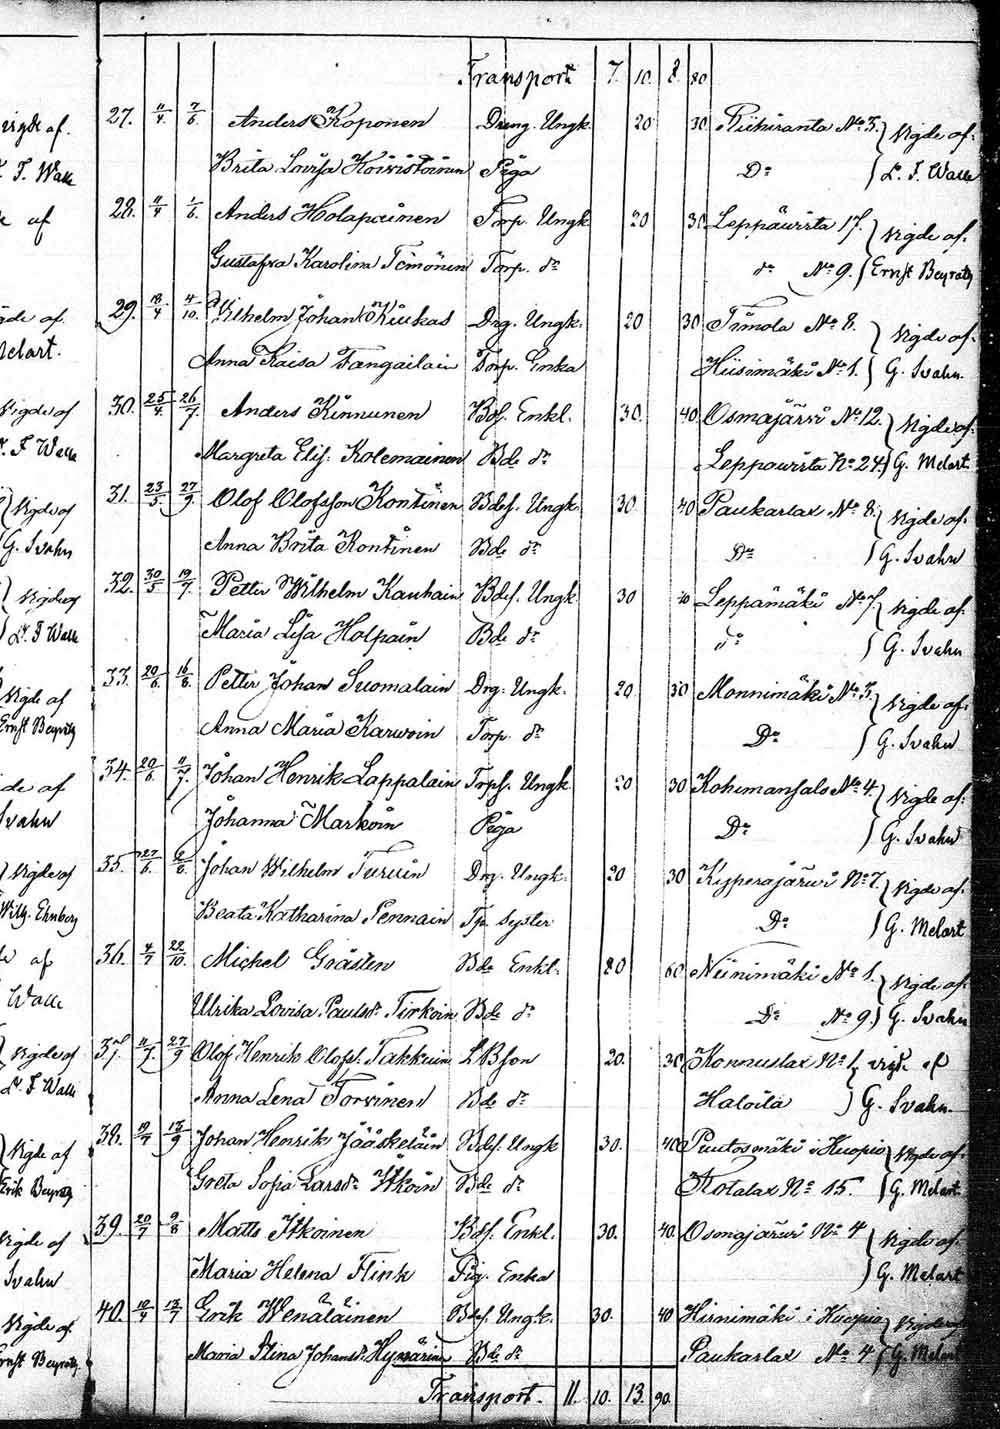 Transport 7. 10. 8. 80
27. 11/4. 7/6. Anders Koponen Dreng. Ungk. 20 30 Riihiranta No 3. Vigde af.
Brita Lovisa Koivistoinen Piga Do L. F. Walle
28. 11/4 1/6. Anders Holapainen Torp. Ungk. 20 30 Leppäwirta 17. Vigde af.
Gustafva Karolina Timonen Torp. dr do No 9. Ernst Beyrath
29. 18/4 4/10. Wilhelm Johan Kiukas Drg. Ungk. 20 30 Timola No 8. Vigde af.
Anna Kaisa Tangailain Torp. Enka Hiisimäki No 1. G. Svahn.
30. 25/4. 26/7. Anders Kinnunen Bds. Enkl. 30. 40 Osmajärvi No 12. Vigde af.
Margreta Elis: Kolemainen Bde dr Leppowirta No 24. G. Melart
31. 23/5. 27/9. Olof Olofsson Kontinen Bdes. Ungk. 30 40 Paukarlax No 8. Vigde af.
Anna Brita Kontinen Bde dr Do G. Svahn
32. 30/5 19/7. Petter Wilhelm Kauhain Bdes. Ungk. 30 40 Leppämäki No 7. Vigde af.
Maria Lisa Holpain Bde dr do G. Svahn
33. 20/6. 16/8. Petter Johan Suomalain Drg. Ungk. 20 30 Monnimäki No 3. Vigde af.
Anna Maria Karwoin Torp. dr Do G. Svahn
34. 20/6. 11/7. Johan Henrik Lappalain Torps. Ungk. 20 30 Kohimansalo No 4. Vigde af.
Johanna Markoin Piga Do G. Svahn
35. 27/6. 2/8. Johan Wilhelm Turuin Drg. Ungk. 20 30 Kypperäjärwi No 7. Vigde af.
Beata Katharina Pennain Tp. syster Do G. Melart
36. 4/7 22/10. Mickel Gråsten Bde Enkl. 20 60 Niinimäki No 1. Vigde af.
Ulrika Lovisa Paulsdr Tirkoin Bde dr Do No 9. G. Svahn
37. 11/7. 27/9 Olof Henrik Olofss. Takkuin L. Bson 20. 30 Konnuslax No 1. vigde af
Anna Lena Torvinen Bde dr Haloila G. Svahn.
38. 19/7 13/9 Johan Henrik Jääskeläin Bdes. Ungk 30. 40 Puutosmäki i Kuopio Vigde af.
Greta Sofia Larsdr Itkoin Bde dr Kotalax No 15. G. Melart
39. 20/7 9/8 Matts Itkoinen Bds. Enkl. 30. 40. Osmajärwi No 4 Vigde af.
Maria Helena Flink Pig. Enka G. Melart
40. 10/4 13/7 Erik Wenäläinen Bdes. Ungk. 30. 40 Hirnimäki i Kuopio Vigde af
Maria Stina Johansdr Hyvärinen Bde dr Paukarlax No 4 G. Melart
Transport. 11. 10. 13. 90.